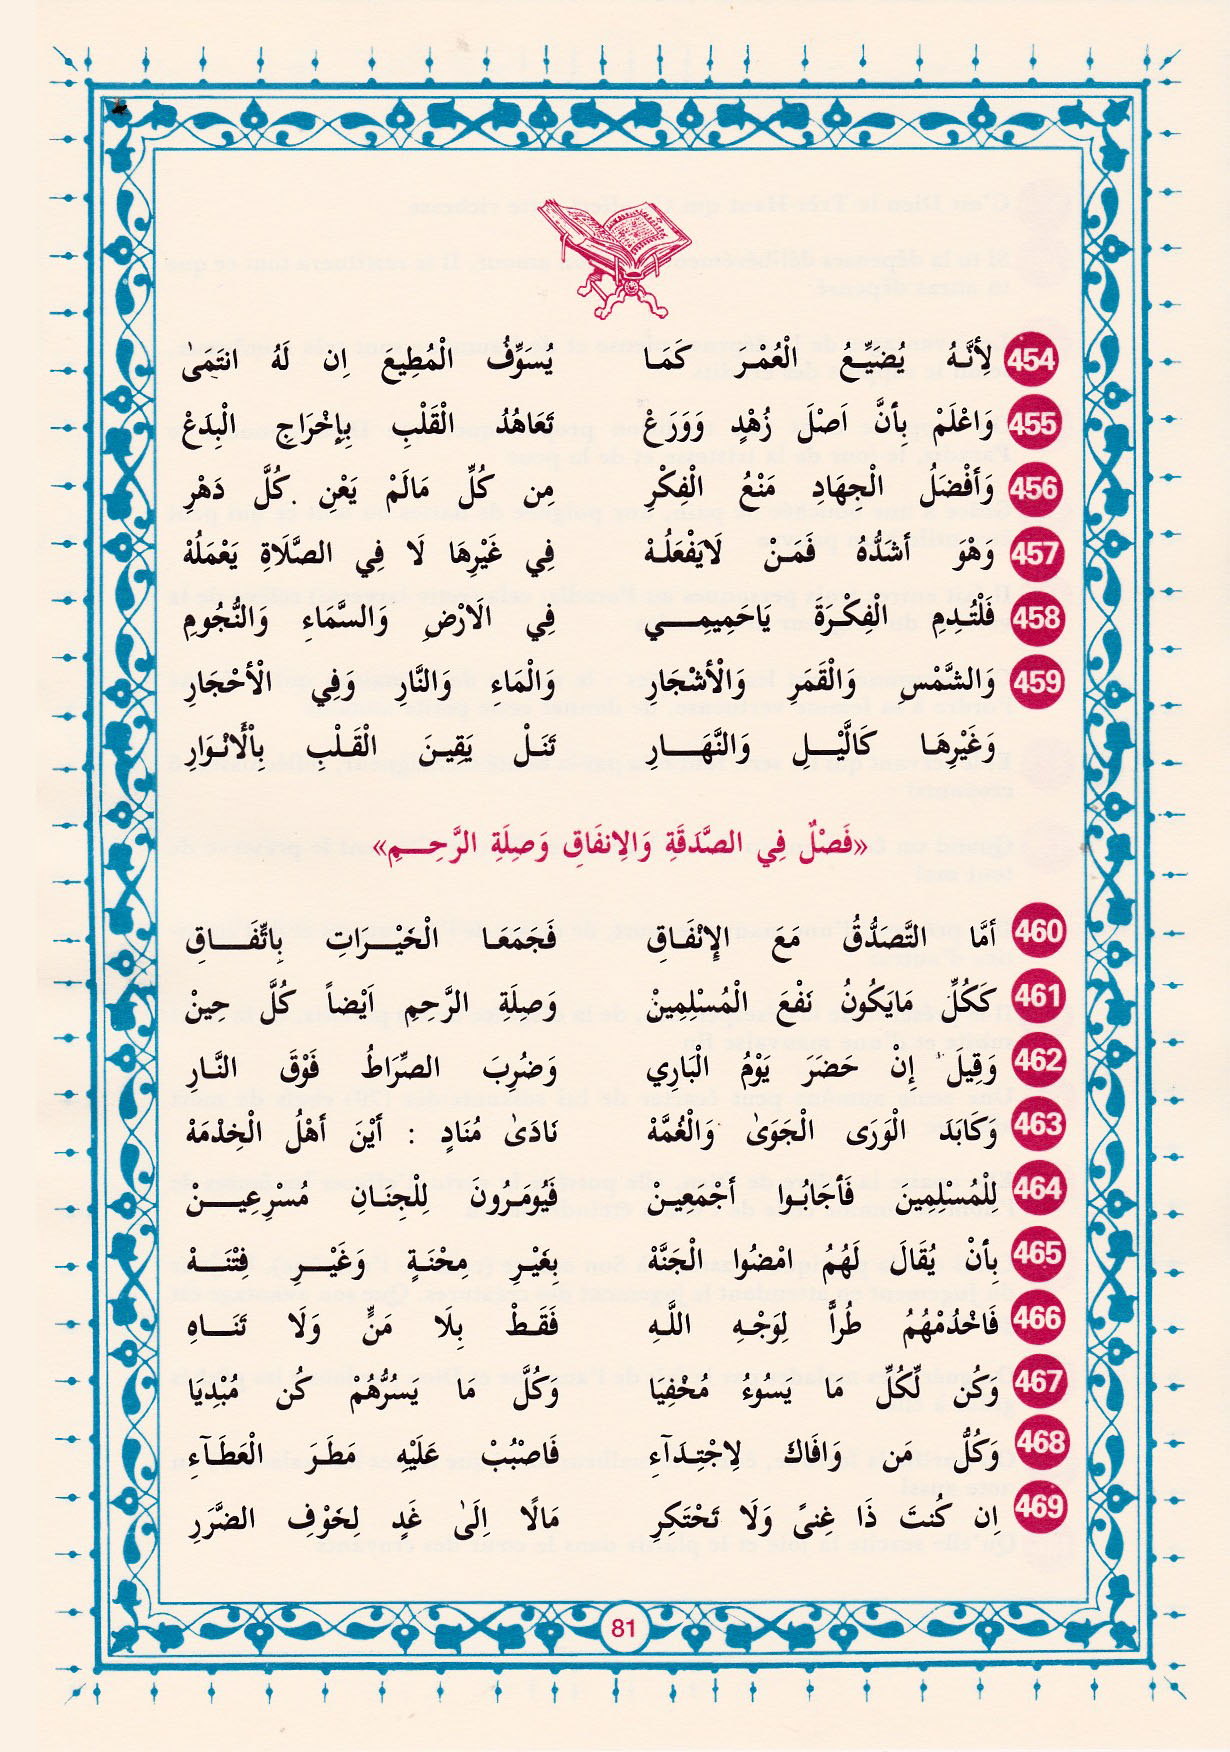 454 لِأَنَّهُ يُضَيِّعُ الْعُمْرَ كَمَا يُسَوِّفُ الْمُطِيعَ اِن لَهُ انتَمَىٰ
455 وَاعْلَمْ بِأَنَّ اَصْلَ زُهْدٍ وَوَرَعْ تَعَاهُدُ الْقَلْبِ بِإِخْرَاجِ الْبِدَعْ
456 وَأَفْضَلُ الْجِهَادِ مَنْعُ الْفِكْرِ مِن كُلِّ مَالَمْ يَعْنِ كُلَّ دَهْرِ
457 وَهْوَ أَشَدُّهُ فَمَنْ لَايَفْعَلُهْ فِي غَيْرِهَا لَا فِي الصَّلَاةِ يَعْمَلُهْ
458 فَلْتُدِمِ الْفِكْرَةَ يَاحَمِيمِي فِي الَارْضِ وَالسَّمَاءِ وَالنُّجُومِ
459 وَالشَّمْسِ وَالْقَمَرِ وَالْأَشْجَارِ وَالْمَاءِ وَالنَّارِ وَفِي الْأَحْجَارِ
وَغَيْرِهَا كَالَّيْلِ وَالنَّهَارِ تَنَلْ يَقِينَ الْقَلْبِ بِالْأَنْوَارِ
«فَصْلٌ فِي الصَّدَقَةِ وَالِانفَاقِ وَصِلَةِ الرَّحِمِ»
460 أَمَّا التَّصَدُّقُ مَعَ الْإِنْفَاقِ فَجَمَعَا الْخَيْرَاتِ بِاتِّفَاقِ
461 كَكُلِّ مَايَكُونُ نَفْعَ الْمُسْلِمِينْ وَصِلَةِ الرَّحِمِ اَيْضاً كُلَّ حِينْ
462 وَقِيلَ إِن حَضَرَ يَوْمُ الْبَارِي وَضُرِبَ الصِّرَاطُ فَوْقَ النَّارِ
463 وَكَابَدَ الْوَرَى الْجَوَىٰ وَالْغُمَّهْ نَادَىٰ مُنَادٍ : أَيْنَ أَهْلُ الْخِدْمَهْ
464 لِلْمُسْلِمِينَ فَأَجَابُوا أَجْمَعِينْ فَيُومَرُونَ لِلْجِنَانِ مُسرِعِينْ
465 بِأَنْ يُقَالَ لَهُمُ امْضُوا الْجَنَّهْ بِغَيْرِ مِحْنَةٍ وَغَيْرِ فِتْنَهْ
466 فَاخْدُمْهُمُ طُرّاً لِوَجْهِ اللَّهِ فَقَطْ بِلَا مَنٍّ وَلَا تَنَاهِ
467 وَكُن لِّكُلِّ مَا يَسُوءُ مُخْفِيَا وَكُلَّ مَا يَسُرُّهُمْ كُن مُبْدِيَا
468 وَكُلُّ مَن وَافَاكَ لِاجْتِدَآءِ فَاصْبُبْ عَلَيْهِ مَطَرَ الْعَطَآءِ
469 اِن كُنتَ ذَا غِنىً وَلَا تَحْتَكِرِ مَالًا اِلَىٰ غَدٍ لِخَوْفِ الضَّرَرِ
81